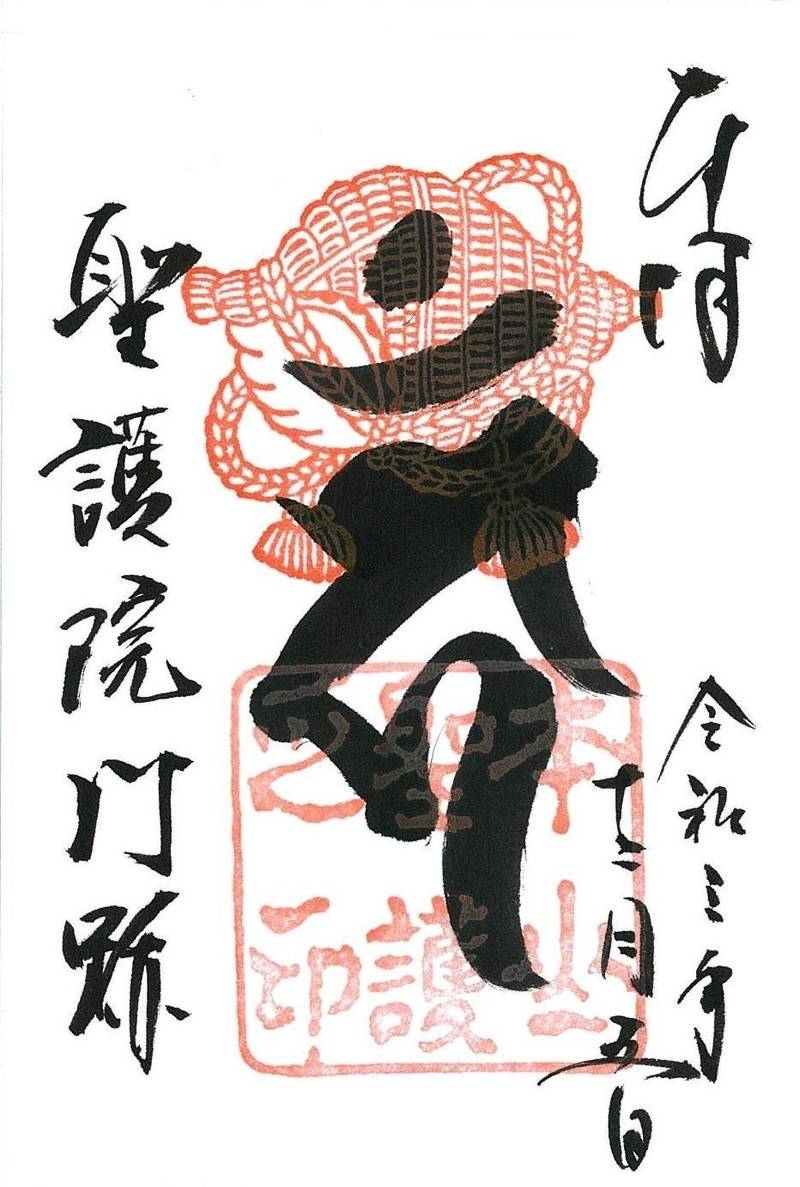 奉拝
令和三年
十二月五日
本山
聖護
之印
聖護院門跡